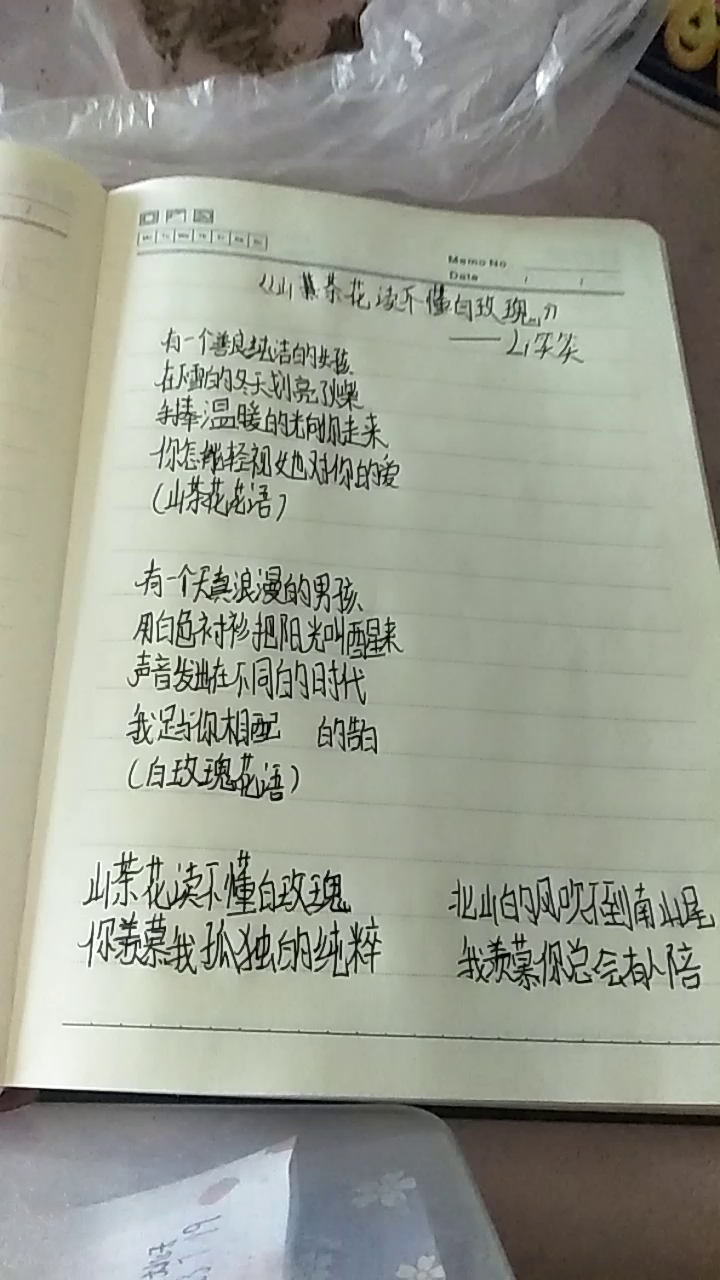 Memo No.
Date / /
《山茶花读不懂白玫瑰》
有一个善良纯洁的女孩
在下雪的冬天划亮火柴
手捧温暖的光向你走来
你怎能轻视她对你的爱
(山茶花花语)
有一个天真浪漫的男孩
用白色衬衫把阳光叫醒来
声音发出在不同的时代
我足与你相配 的告白
(白玫瑰花语)
山茶花读不懂白玫瑰 北山的风吹不到南山尾
你羡慕我孤独的纯粹 我羡慕你总会有人陪